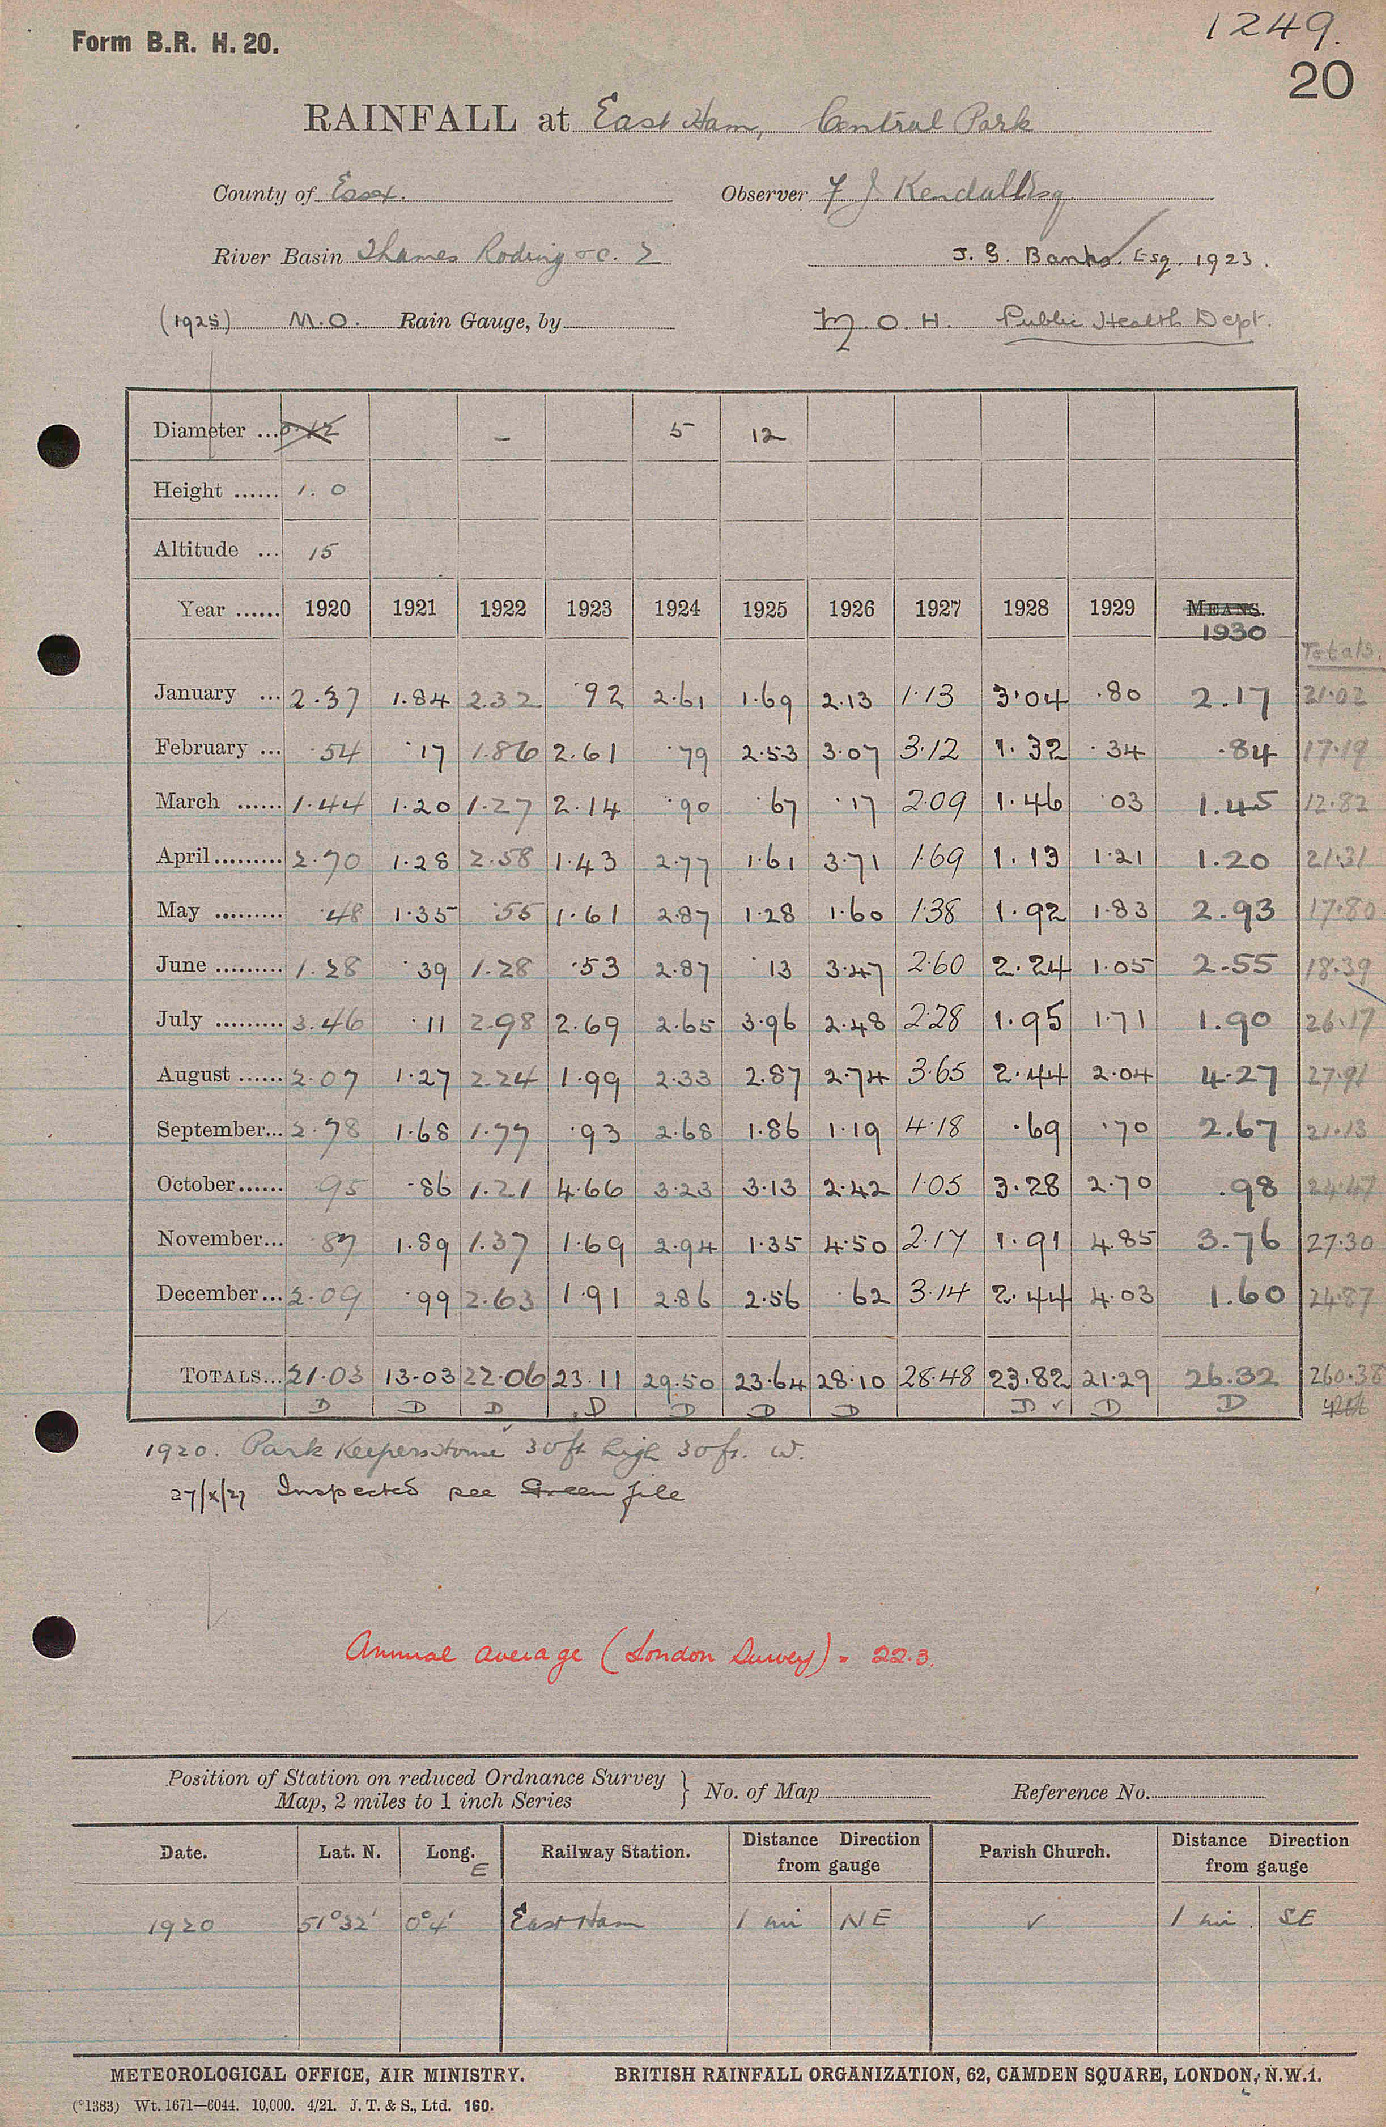 1249.
Form B.R. H. 20.
20
RAINFALL at East Ham, Central Park
County of Essex. Observer F J. Kendall Esq
River Basin Thames Roding &c. 2 J. S. Banks Esq. 1923.
(1925) M.O. Rain Gauge, by M. O. H. Public Health Dept.
Diameter ... 5 12
Height ...... 1. 0
Altitude ... 15
Year ...... 1920 1921 1922 1923 1924 1925 1926 1927 1928 1929 MEANS.
1930
Totals.
January ... 2.37 1.84 2.32 .92 2.61 1.69 2.13 1.13 3.04 .80 2.17 21.02
February ... .54 .17 1.86 2.61 .79 2.53 3.07 3.12 1.32 .34 .84 17.19
March ...... 1.44 1.20 1.27 2.14 .90 .67 .17 2.09 1.46 .03 1.45 12.82
April......... 2.70 1.28 2.58 1.43 2.77 1.61 3.71 1.69 1.13 1.21 1.20 21.31
May ......... .48 1.35 .55 1.61 2.87 1.28 1.60 1.38 1.92 1.83 2.93 17.80
June ......... 1.28 .39 1.28 .53 2.87 .13 3.47 2.60 2.24 1.05 2.55 18.39
July ......... 3.46 .11 2.98 2.69 2.65 3.96 2.48 2.28 1.95 1.71 1.90 26.17
August ...... 2.07 1.27 2.24 1.99 2.33 2.87 2.74 3.65 2.44 2.04 4.27 27.91
September... 2.78 1.68 1.77 .93 2.68 1.86 1.19 4.18 .69 .70 2.67 21.13
October...... .95 .86 1.21 4.66 3.23 3.13 2.42 1.05 3.28 2.70 .98 24.47
November... .87 1.89 1.37 1.69 2.94 1.35 4.50 2.17 1.91 4.85 3.76 27.30
December... 2.09 .99 2.63 1.91 2.86 2.56 .62 3.14 2.44 4.03 1.60 24.87
TOTALS... 21.03 13.03 22.06 23.11 29.50 23.64 28.10 28.48 23.82 21.29 26.32 260.38
D D D D D D D D ✓ D D
1920. Park Keepers Home 30ft high 30ft. W.
27/X/27 Inspected see Green file
Annual average (London Survey) = 22.3.
Position of Station on reduced Ordnance Survey Map, 2 miles to 1 inch Series } No. of Map Reference No.
Date. Lat. N. Long. E Railway Station. Distance Direction from gauge Parish Church. Distance Direction from gauge
1920 51°32' 0°4' East Ham 1 mi NE ✓ 1 mi. SE
METEOROLOGICAL OFFICE, AIR MINISTRY. BRITISH RAINFALL ORGANIZATION, 62, CAMDEN SQUARE, LONDON, N.W.1.
(°1383) Wt. 1671—6044. 10,000. 4/21. J. T. & S., Ltd. 160.